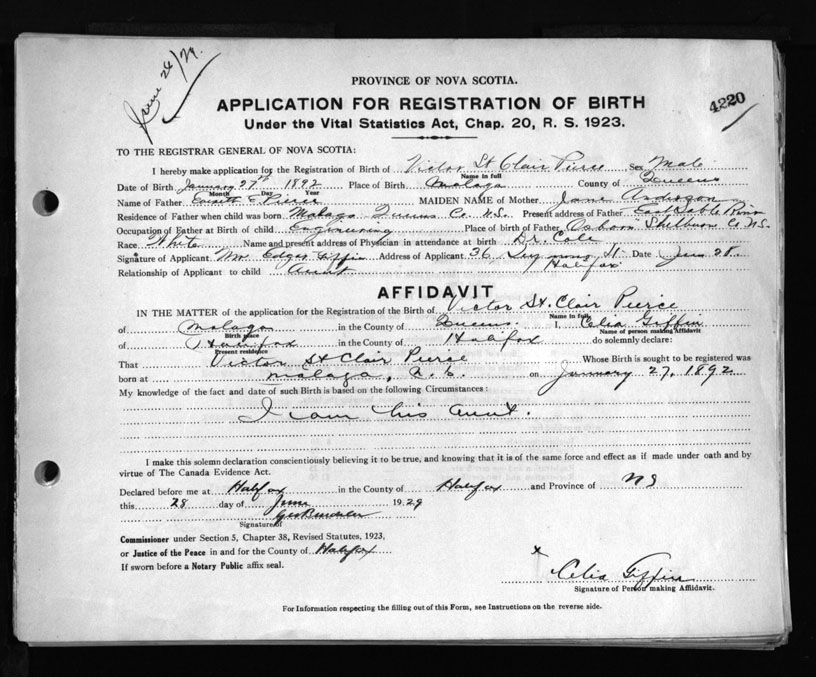 June 26/29.
PROVINCE OF NOVA SCOTIA.
4220
APPLICATION FOR REGISTRATION OF BIRTH
Under the Vital Statistics Act, Chap. 20, R. S. 1923.
TO THE REGISTRAR GENERAL OF NOVA SCOTIA:
I hereby make application for the Registration of Birth of Victor St Clair Pierce Sex Male
Name in full
Date of Birth January 27th 1892 Place of Birth Molaga County of Queens
Month Day Year
Name of Father Pierce MAIDEN NAME of Mother Jane Anderson
Residence of Father when child was born Molaga Queens Co. N.S. Present address of Father East Sable River
Occupation of Father at Birth of child Engineering Place of birth of Father Osborn Shelburn Co N.S.
Race White Name and present address of Physician in attendance at birth Dr. Cole
Signature of Applicant Wm Edgar Giffin Address of Applicant 36 Seymour St Date June 28.
Halifax
Relationship of Applicant to child Aunt
AFFIDAVIT
IN THE MATTER of the application for the Registration of the Birth of Victor St. Clair Pierce
Name in full
of Molaga in the County of Queens I, Celia Giffin
Birth place Name of person making Affidavit
of Halifax in the County of Halifax do solemnly declare:
Present residence
That Victor St Clair Pierce Whose Birth is sought to be registered was
born at Molaga, on January 27, 1892
My knowledge of the fact and date of such Birth is based on the following Circumstances:
I am his aunt.
I make this solemn declaration conscientiously believing it to be true, and knowing that it is of the same force and effect as if made under oath and by
virtue of The Canada Evidence Act.
Declared before me at Halifax in the County of Halifax and Province of NS
this 28 day of June 1929
Signature of
Commissioner under Section 5, Chapter 38, Revised Statutes, 1923,
or Justice of the Peace in and for the County of Halifax
If sworn before a Notary Public affix seal.
x Celia Giffin
Signature of Person making Affidavit.
For Information respecting the filling out of this Form, see Instructions on the reverse side.